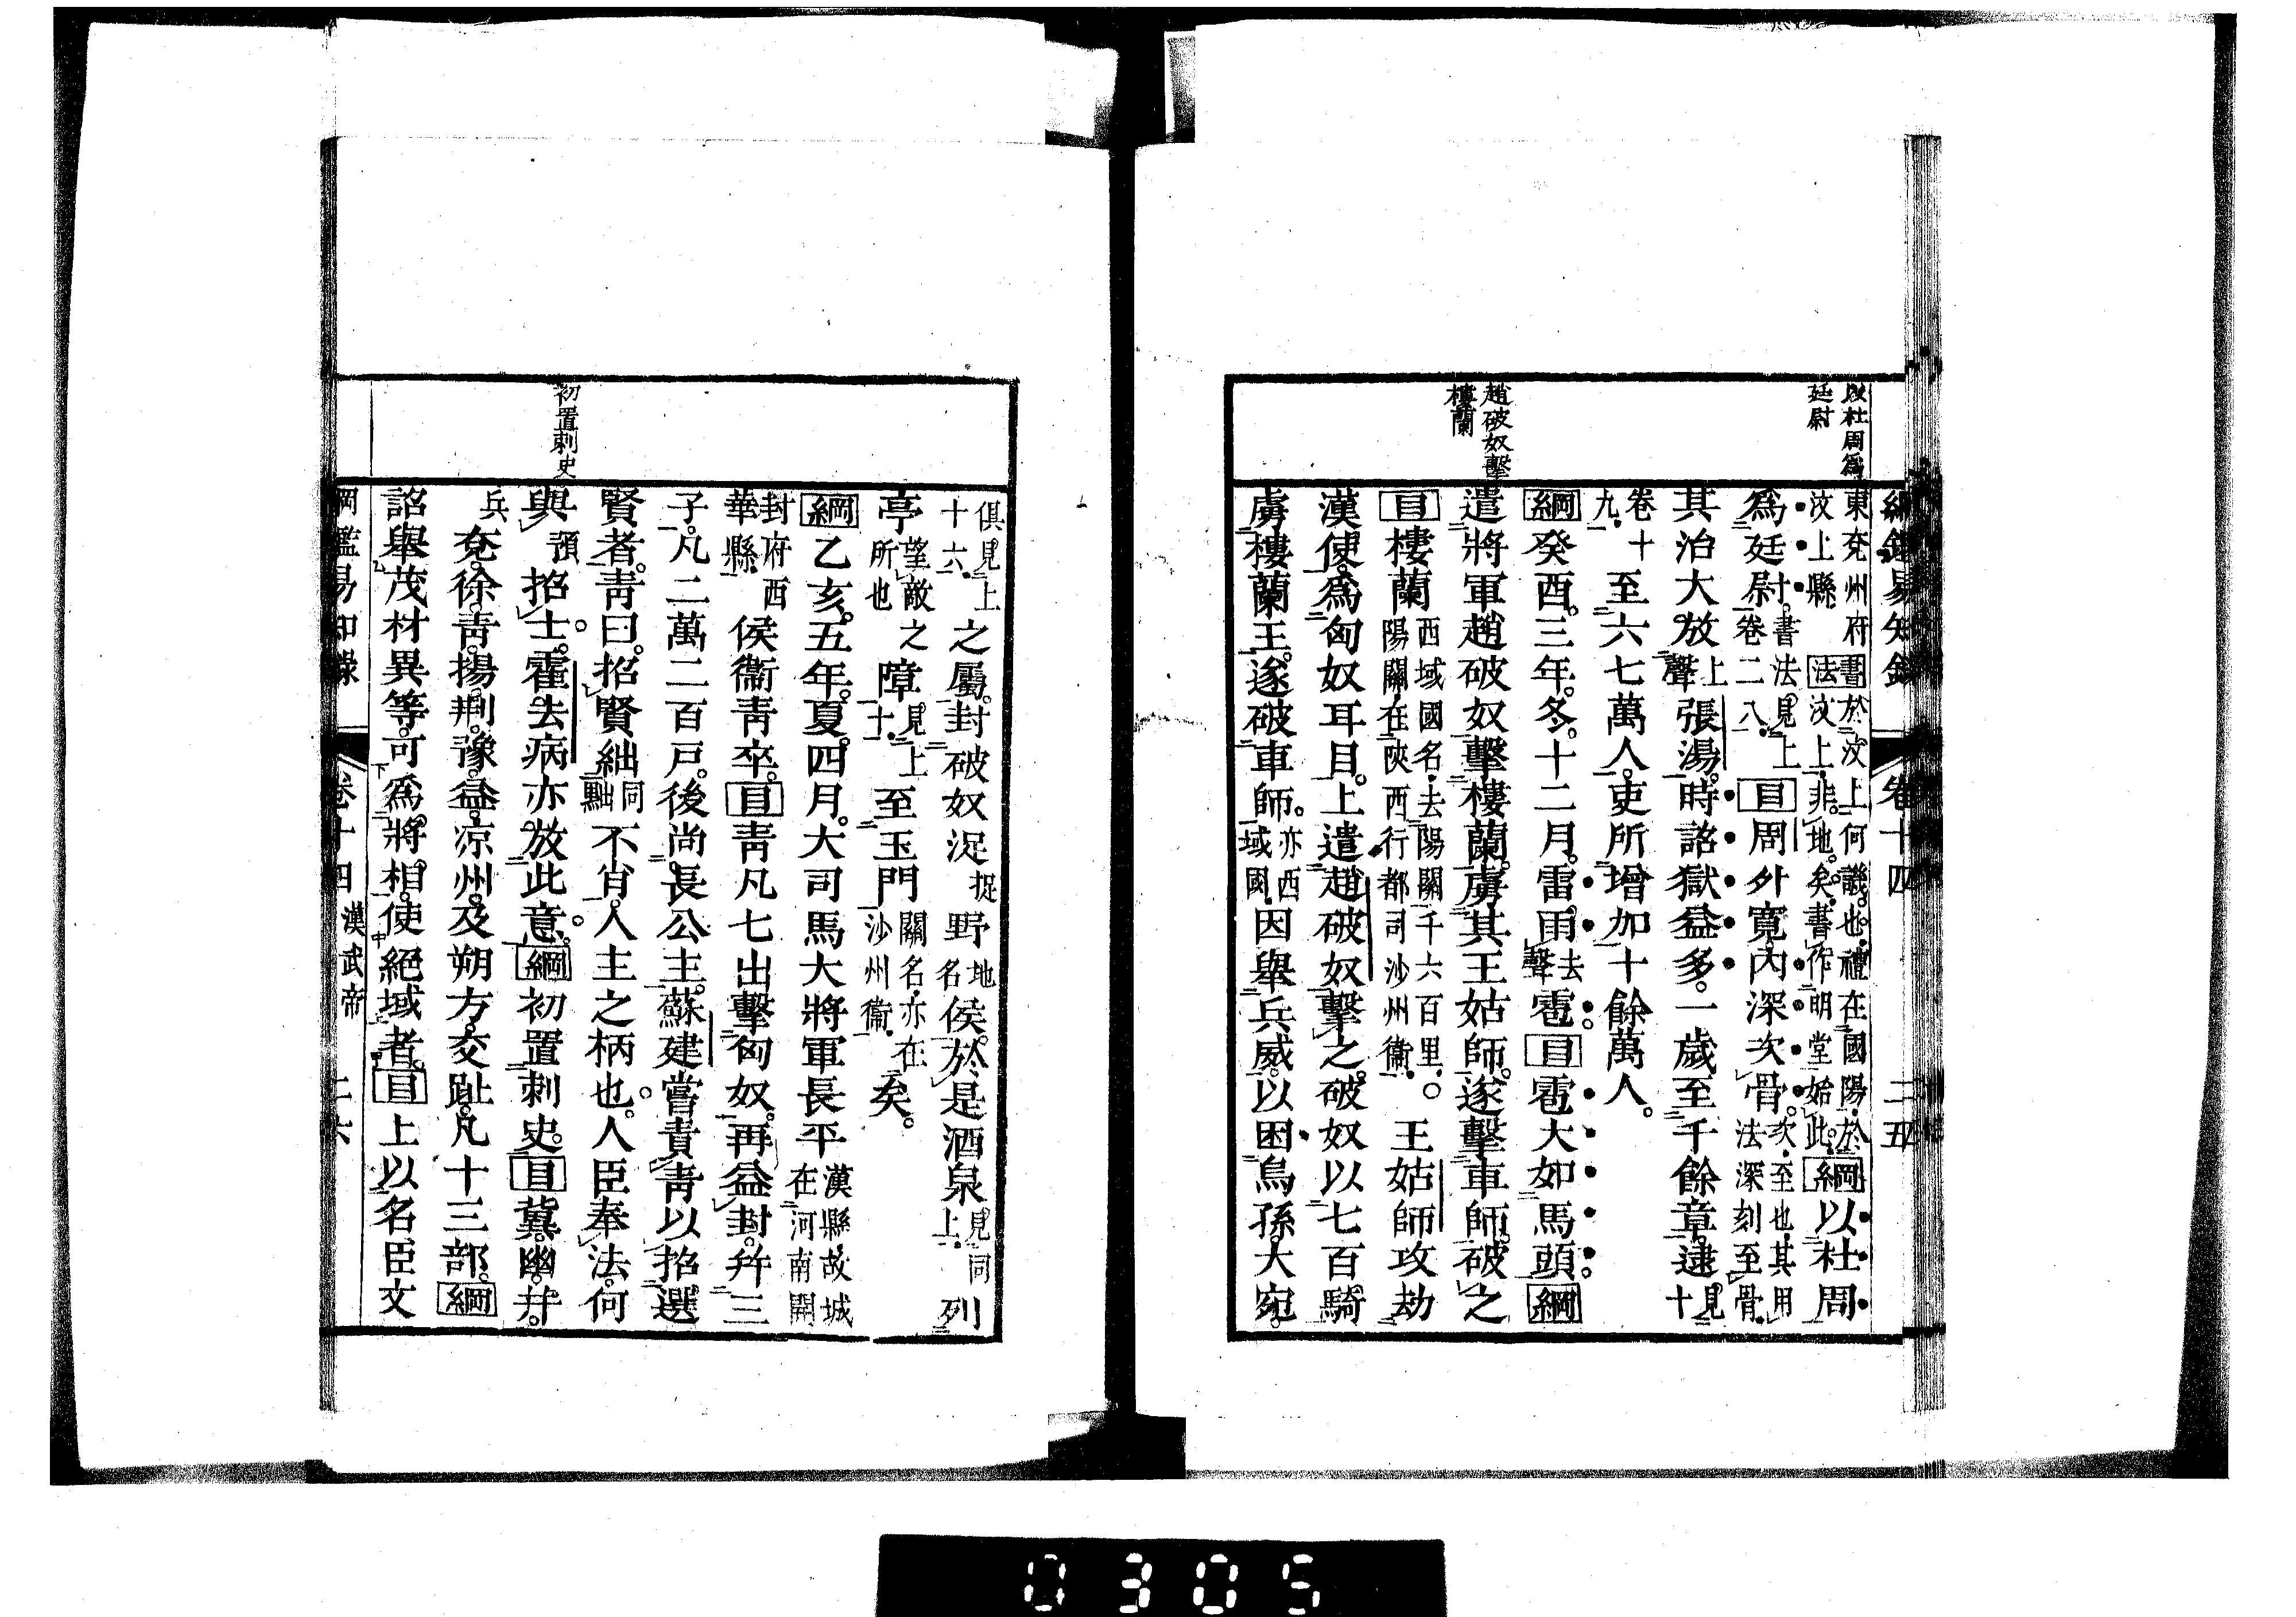 綱鑑易知錄 卷十四 二五
以杜周爲
廷尉
趙破奴擊
樓蘭
東兗州府
汶上縣
書法
於汶上何譏也禮在國陽於
汶上非地矣書作明堂始此
綱以杜周
爲廷尉
書法見上
卷二八
目周外寬內深次骨
次至也其用
法深刻至骨
其治大放
上聲
張湯時詔獄益多一歲至千餘章逮
見十
卷十
九
至六七萬人吏所增加十餘萬人
綱癸酉三年冬十二月雷雨
去聲
雹目雹大如馬頭綱
遣將軍趙破奴擊樓蘭虜其王姑師遂擊車師破之
目樓蘭
西域國名去陽關千六百里
陽關在陝西行都司沙州衞
○王姑師攻劫
漢使爲匈奴耳目上遣趙破奴擊之破奴以七百騎
虜樓蘭王遂破車師
亦西
域國
因舉兵威以困烏孫大宛
俱見上
十六
之屬封破奴浞
捉
野
地
名
侯於是酒泉
見同
上
列
亭
望敵之
所也
障
見上
十一
至玉門
關名亦在
沙州衞
矣
綱乙亥五年夏四月大司馬大將軍長平
漢縣故城
在河南開
封府西
華縣
侯衞靑卒目靑凡七出擊匈奴再益封幷三
子凡二萬二百戸後尚長公主蘇建嘗責靑以招選
賢者靑曰招賢絀
同
黜
不肖人主之柄也人臣奉法何
與
預
招士霍去病亦放此意綱初置刺史目冀幽幷
兵
兗徐靑揚荆豫益凉州及朔方交趾凡十三部綱
詔舉茂材異等可爲將相使絕域者目上以名臣文
初置刺史
綱鑑易知錄 卷十四 漢武帝 二六
0305